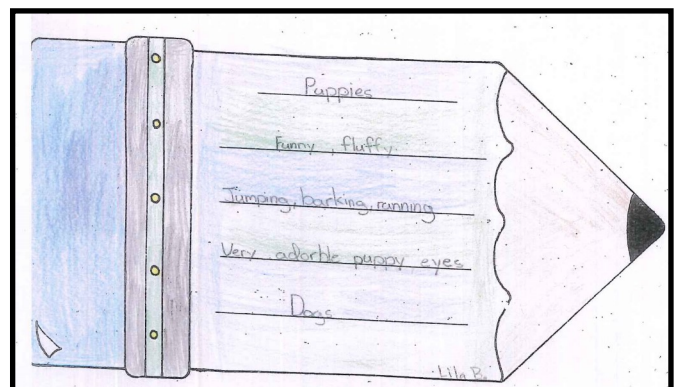 Puppies
Funny, fluffy
Jumping, barking, running
Very adorble puppy eyes
Dogs
Lila B.